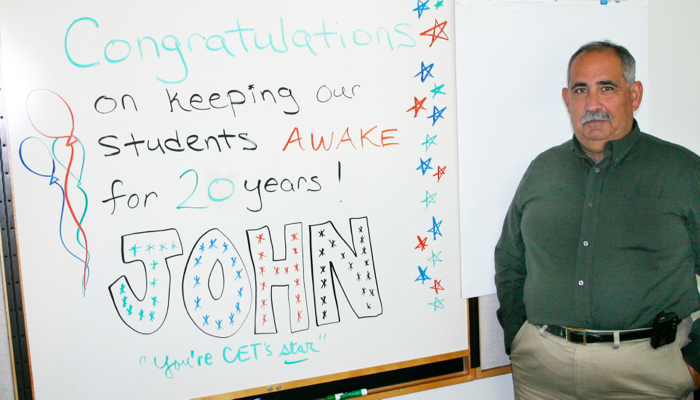 Congratulations
on keeping our
students AWAKE
for 20 years!
JOHN
"You're CET's star"